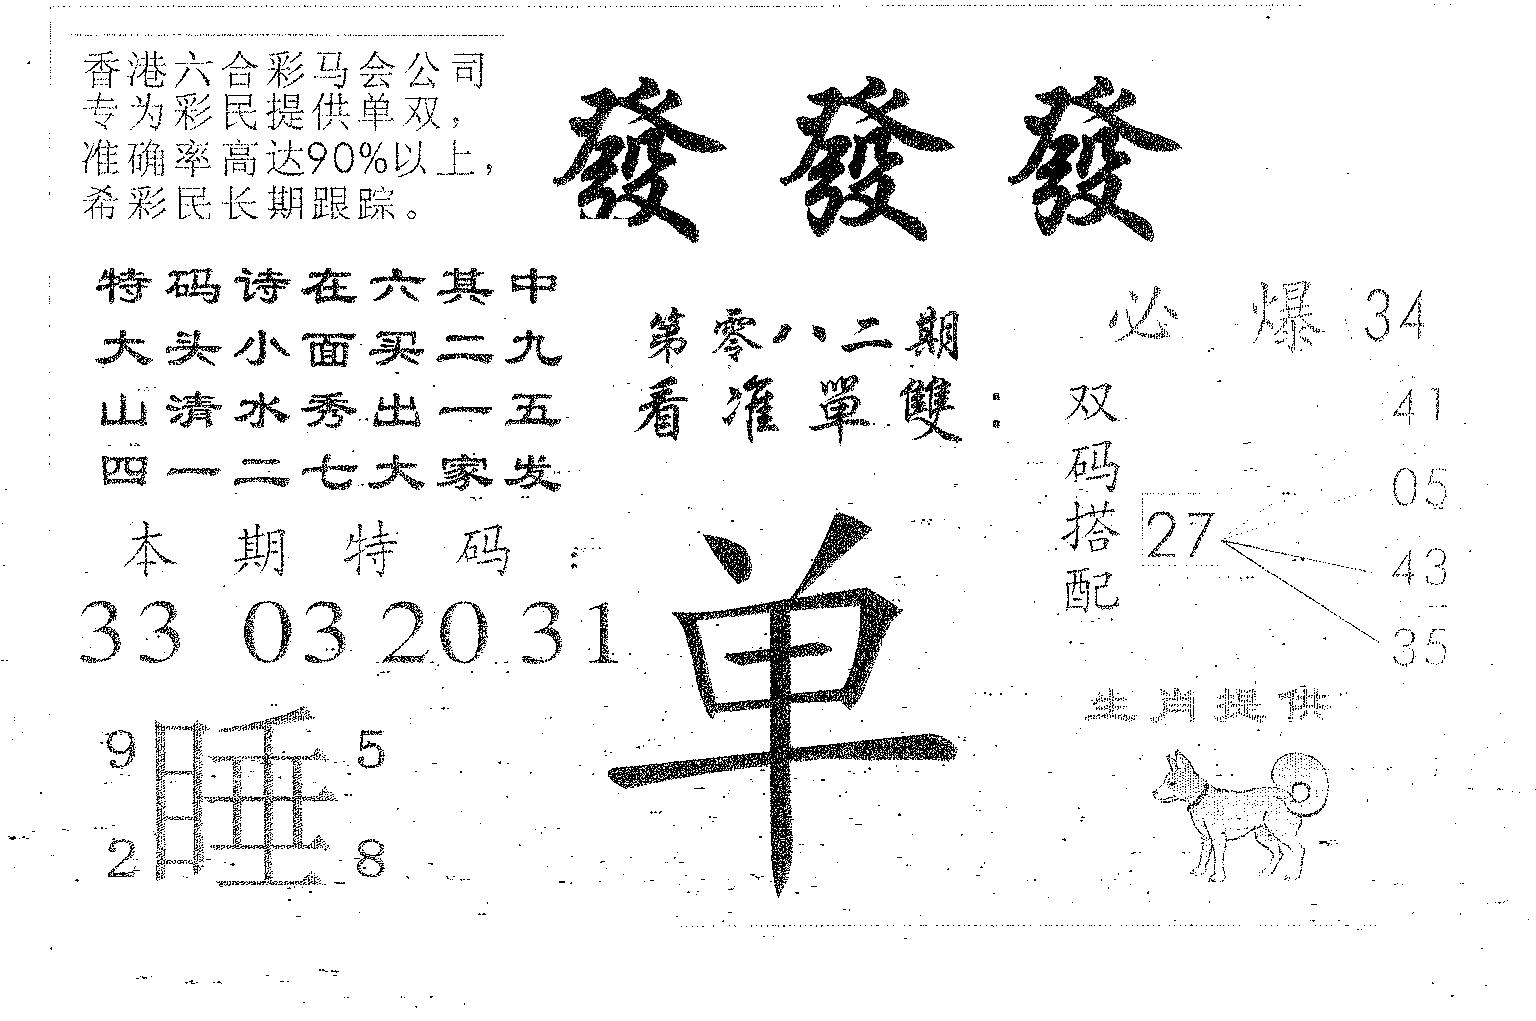 香港六合彩马会公司
专为彩民提供单双，
准确率高达90%以上，
希彩民长期跟踪。
發 發 發
特码诗在六其中
大头小面买二九
山清水秀出一五
四一二七大家发
第零八二期
看准單雙：
必 爆 34
双码搭配
27
41
05
43
35
本期特码：
33 03 20 31
单
9 5
睡
2 8
生肖提供